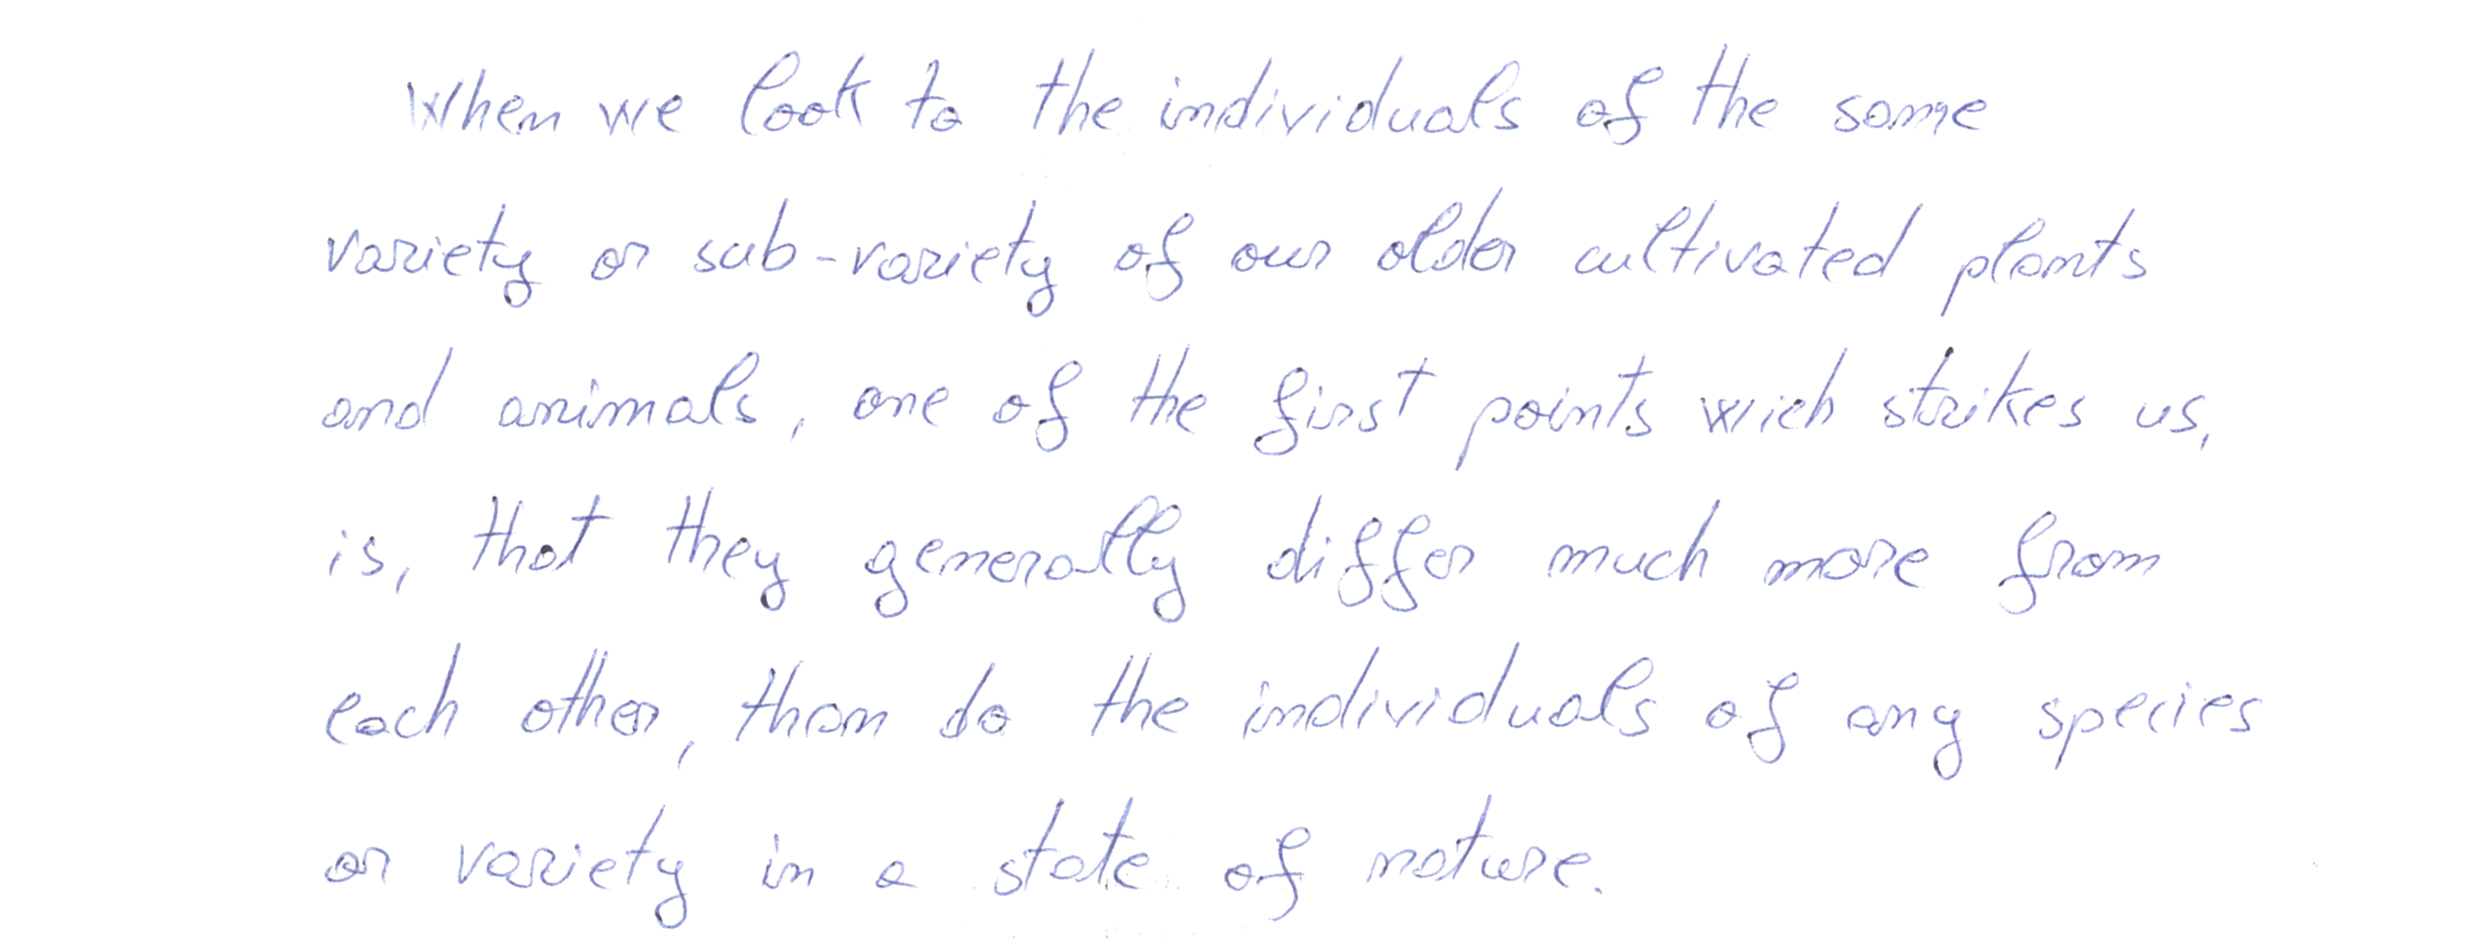 When we look to the individuals of the same
variety or sub-variety of our older cultivated plants
and animals, one of the first points wich strikes us,
is, that they generally differ much more from
each other, than do the individuals of any species
or variety in a state of nature.